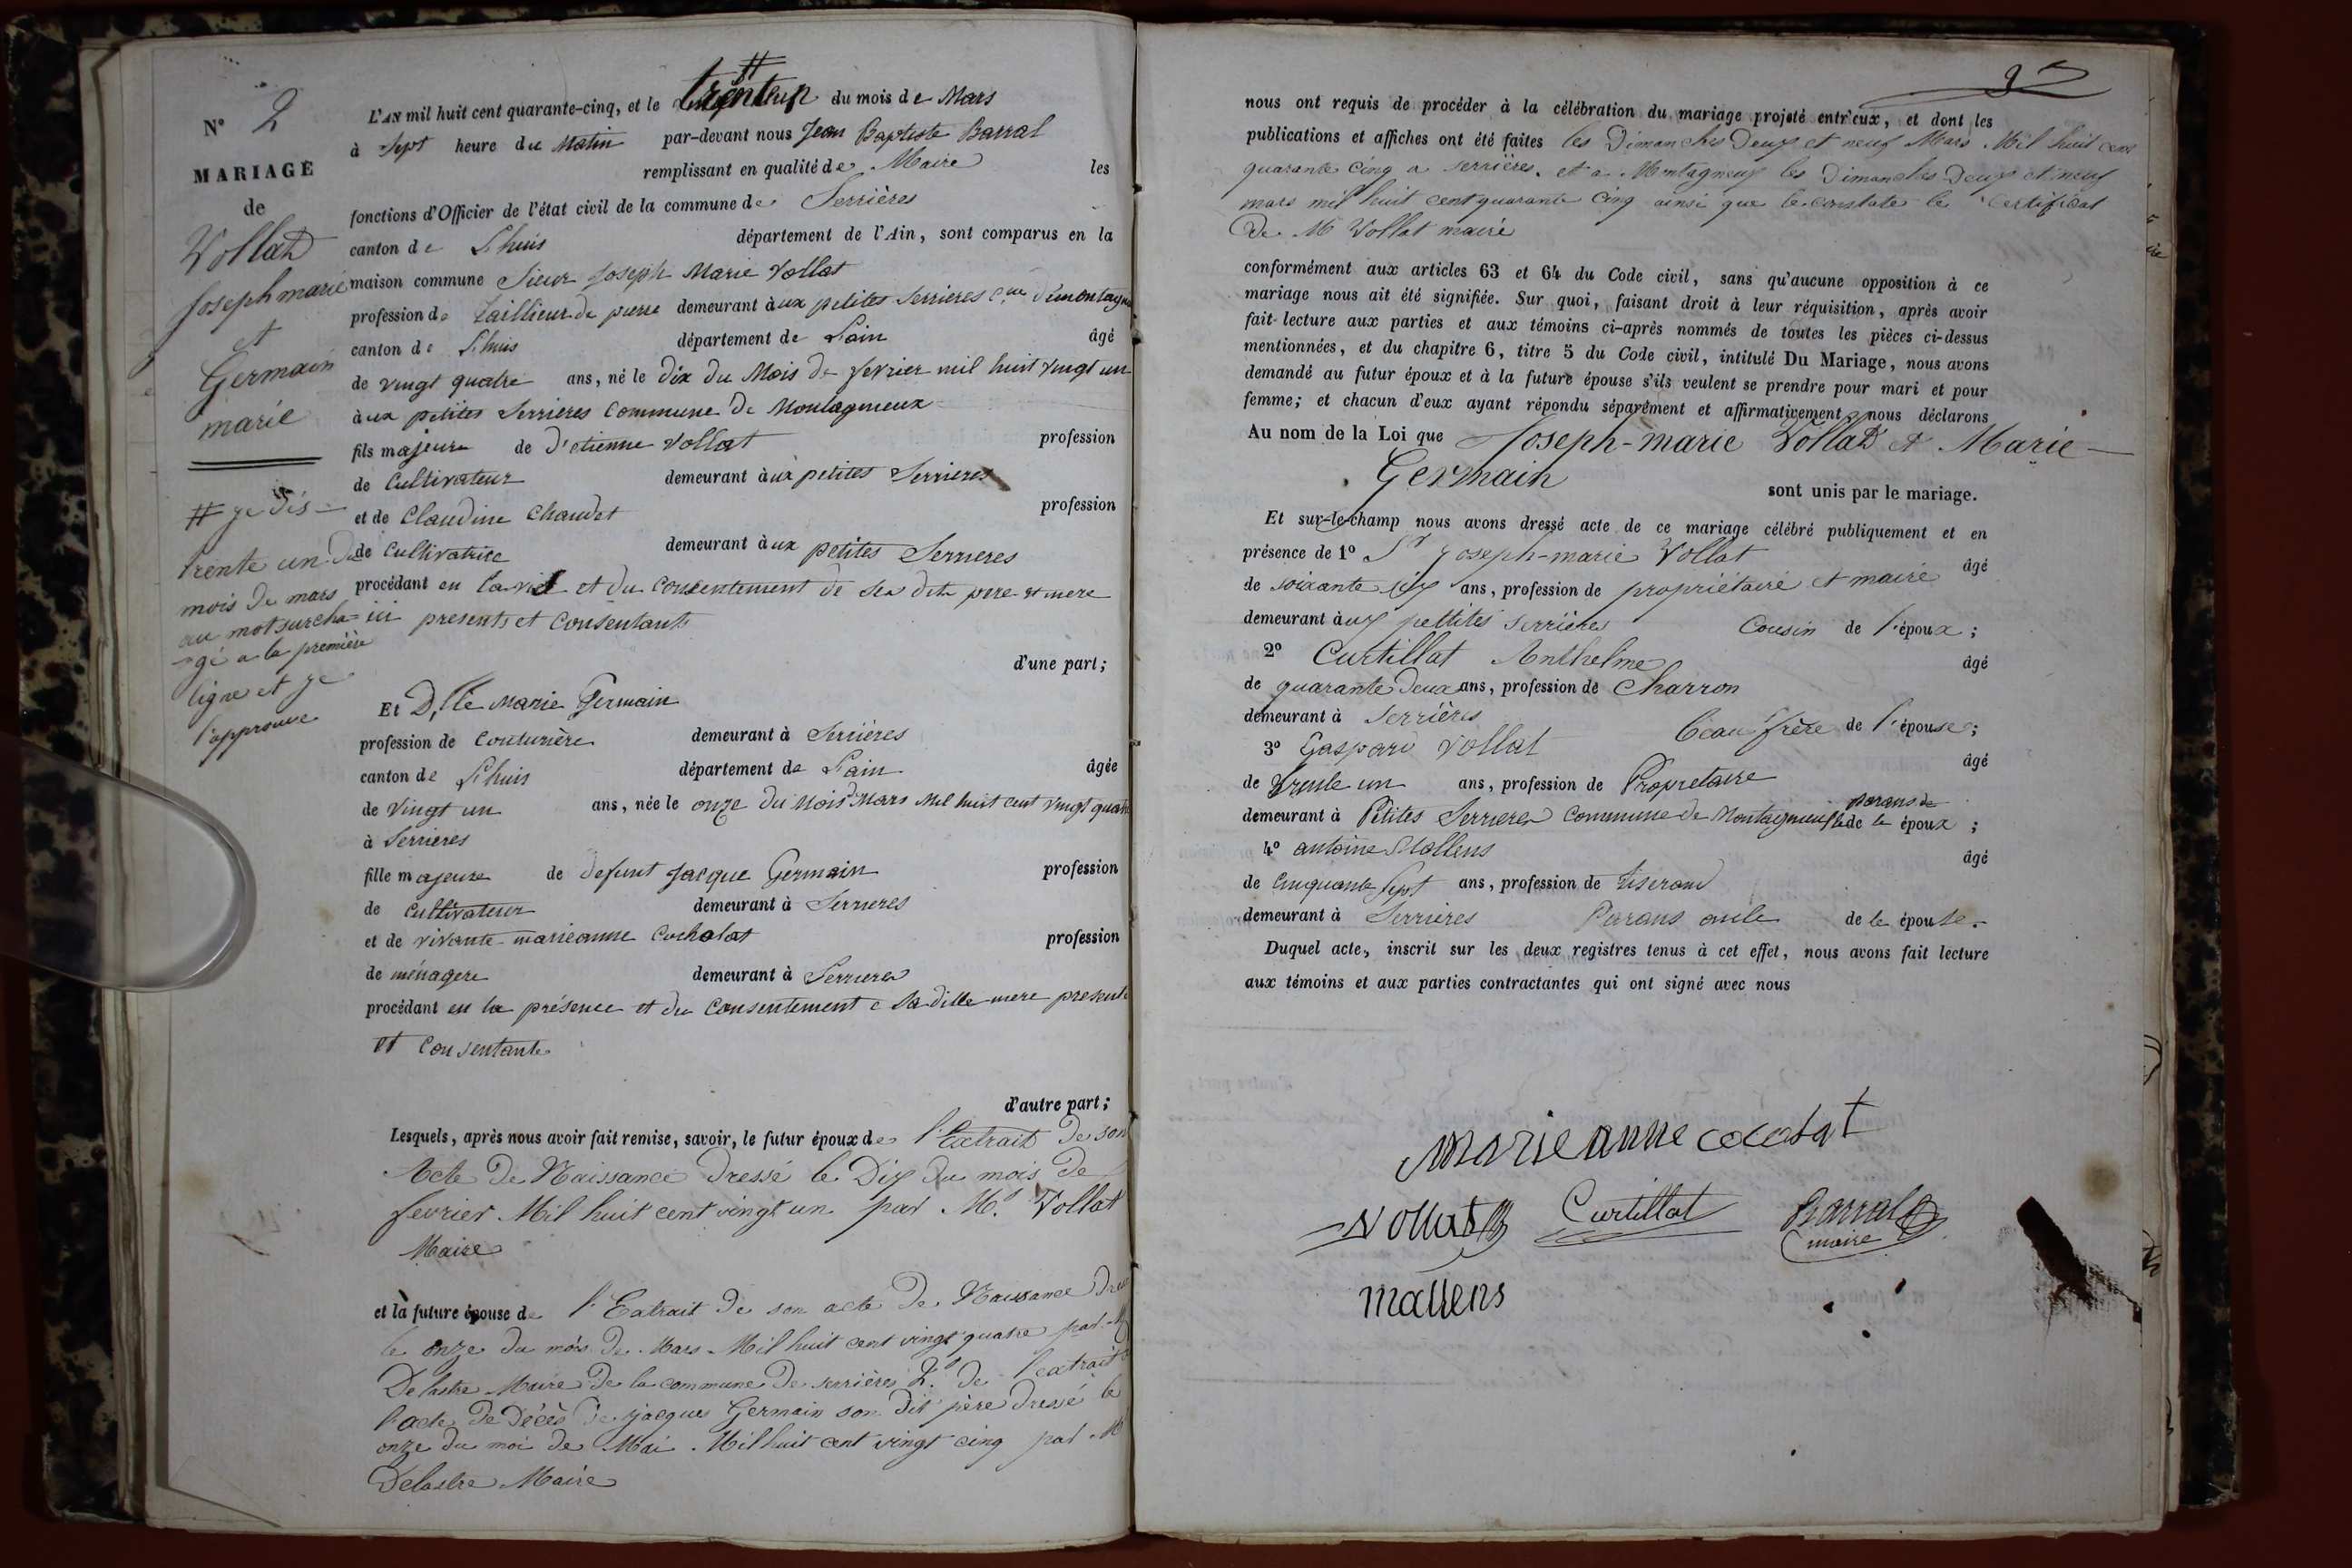 N° 2
MARIAGE
de
Vollat
Joseph marie
et
Germain
marie
# je dis
trente un du
mois de mars
au mot surchar-
-gé a la première
ligne et je
l'approuve
L'AN mil huit cent quarante-cinq, et le # trente un du mois de Mars
à sept heure du Matin par-devant nous Jean Baptiste Barral
remplissant en qualité de Maire les
fonctions d'Officier de l'état civil de la commune de Serrières
canton de Lhuis département de l'Ain, sont comparus en la
maison commune Sieur Joseph Marie Vollat
profession de taillieur de pierre demeurant à ux petites Serrieres
canton de Lhuis département de Lain âgé
de vingt quatre ans, né le dix du Mois de fevrier mil huit vingt un
à ux petites Serrieres commune de Montagnieux
fils majeure de d'etienne Vollat profession
de Cultivateur demeurant à ux petites Serrieres
et de Claudine Chaudet profession
de cultivatrice demeurant à ux petites Serrieres
procédant en et du consentement de ses dits pere et mere
ici presents et consentants
d'une part;
Et D,lle Marie Germain
profession de Couturière demeurant à Serrières
canton de Lhuis département de Lain âgée
de vingt un ans, née le onze du Mois Mars Mil huit cent vingt quatre
à Serrieres
fille majeure de defunt Jacque Germain profession
de cultivateur demeurant à Serrieres
et de vivante marieanne Cochatat profession
de ménagere demeurant à Serrieres
procédant en la présence et du consentement e sa ditte mere presente
et consentante
d'autre part;
Lesquels, après nous avoir fait remise, savoir, le futur époux de l'Extrait de son
Acte de Naissance dressé le Dix du mois de
fevrier Mil huit cent vingt un par Mr. Vollat
Maire
et la future épouse de l'Extrait de son acte de Naissance
le onze du mois de Mars Mil huit cent vingt quatre par M
Delastre Maire de la commune de serrières 2° de l'extrait
l'acte de Décès de jacques Germain son dit père dressé le
onze du moi de Mai Mil huit cent vingt cinq par M
Delastre Maire
nous ont requis de procéder à la célébration du mariage projeté entr'eux, et dont les
publications et affiches ont été faites les Dimanches Deux et neuf Mars Mil huit cent
quarante cinq a serrières, et a Montagneux les Dimanches Deux et neuf
mars mil huit cent quarante cinq ainsi que le constate le certificat
De Mr Vollat maire
conformément aux articles 63 et 64 du Code civil, sans qu'aucune opposition à ce
mariage nous ait été signifiée. Sur quoi, faisant droit à leur réquisition, après avoir
fait lecture aux parties et aux témoins ci-après nommés de toutes les pièces ci-dessus
mentionnées, et du chapitre 6, titre 5 du Code civil, intitulé Du Mariage, nous avons
demandé au futur époux et à la future épouse s'ils veulent se prendre pour mari et pour
femme; et chacun d'eux ayant répondu séparément et affirmativement, nous déclarons
Au nom de la Loi que Joseph-marie Vollat et Marie
Germain sont unis par le mariage.
Et sur-le-champ nous avons dressé acte de ce mariage célébré publiquement et en
présence de 1° Sr joseph-marie Vollat âgé
de soixante six ans, profession de propriétaire et maire
demeurant à ux pettites serrières Cousin de l'époux;
2° Curtillat Anthelme âgé
de quarante deux ans, profession de charron
demeurant à serrières beau frère de l'épouse;
3° Gaspard Vollat âgé
de trente un ans, profession de Propretaire
demeurant à Petites Serrieres commune de Montagnieux parans de le époux;
4° antoine Mallens âgé
de Cinquante sept ans, profession de tiserand
demeurant à Serrières Parans oncle de le épouse.
Duquel acte, inscrit sur les deux registres tenus à cet effet, nous avons fait lecture
aux témoins et aux parties contractantes qui ont signé avec nous
Marieanne cocatat
Vollat Curtillat Barral
maire
mallens